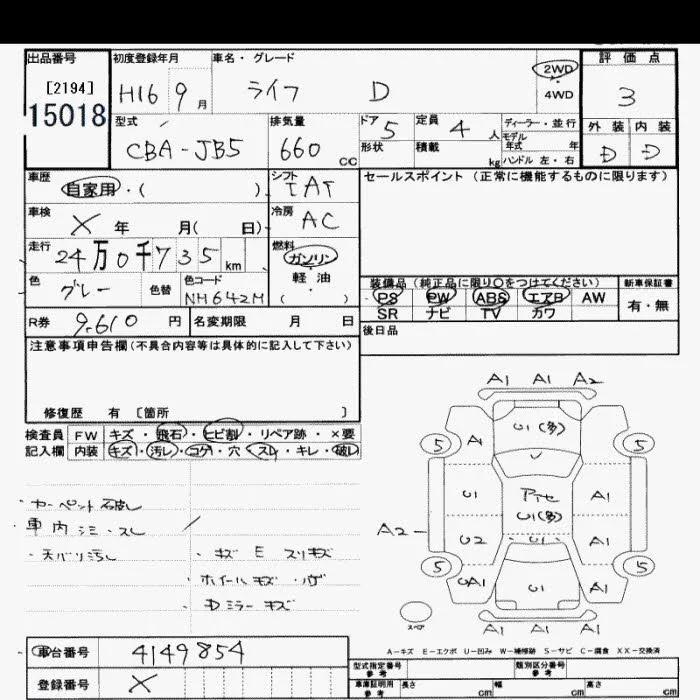 出品番号 初度登録年月 車名・グレード 2WD 評価点
[2194] H16 9月 ライフ D 4WD 3
15018 型式 排気量 ドア 5 定員 4人 ディーラー・並行 外装 内装
CBA-JB5 660 CC 形状 積載 kg モデル年式 年 ハンドル 左・右 D D
車歴 自家用・( ) シフト IAT セールスポイント (正常に機能するものに限ります)
車検 X 年 月( 日) 冷房 AC
走行 24万0千735 km 燃料 ガソリン
軽油
色 グレー 色替 色コード NH642M ( ・ ) 装備品(純正品に限り○をつけてください) 新車保証書
PS PW ABS エアB AW 有・無
SR ナビ TV カワ
R券 9,610 円 名変期限 月 日 後日品
注意事項申告欄(不具合内容等は具体的に記入して下さい)
修復歴 有 [箇所 ]
検査員 FW キズ・飛石・ヒビ割・リペア跡・×要
記入欄 内装 キズ・汚レ・コゲ・穴・スレ・キレ・破レ
・カーペット破レ
・車内シミ・スレ
・天バリ汚レ ・キズ E スリキズ
・ホイールキズ・ハゲ
・Dミラーキズ
A1 A1 A2
5 A1 U1(多) 5
U1 アイセ A1
U1(多)
A2 U2 U1 A1
5 UA1 U1 A1 5
スペア A1 A1 A1
A-キズ E-エクボ U-凹み W-補修跡 S-サビ C-腐食 XX-交換済
車台番号 4149854 型式指定番号 参考 類別区分番号 参考
登録番号 X 車庫証明用 参考 長さ cm 幅 cm 高さ cm